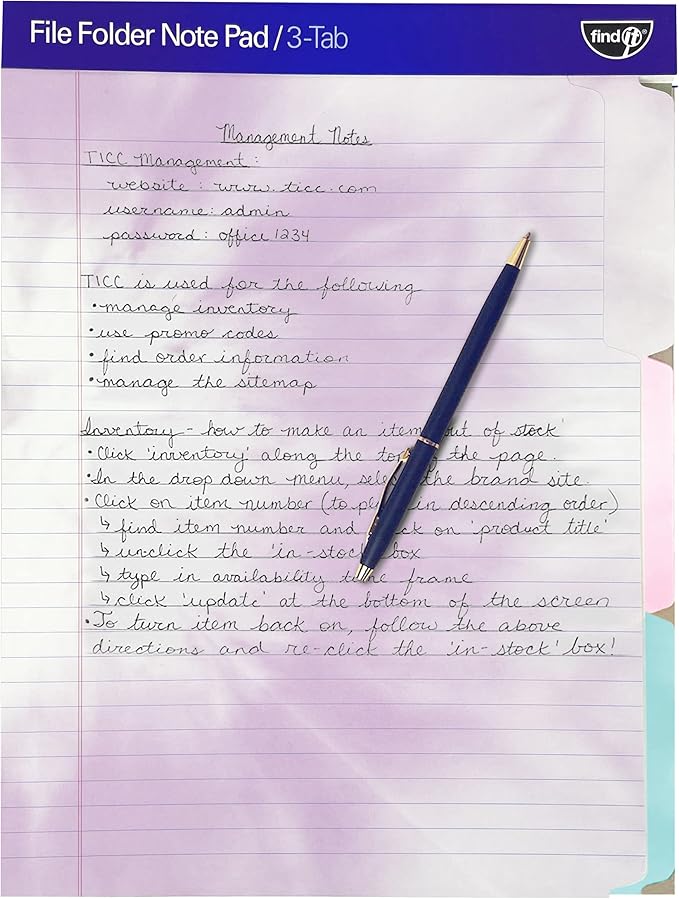 File Folder Note Pad / 3-Tab
find it®
Management Notes
TICC Management :
website : www.ticc.com
username: admin
password: office1234
TICC is used for the following
• manage inventory
• use promo codes
• find order information
• manage the sitemap
Inventory - how to make an item out of stock'
• Click 'inventory' along the top of the page.
• In the drop down menu, select the brand site.
• Click on item number (to in descending order)
↳ find item number and click on 'product title'
↳ unclick the 'in-stock' box
↳ type in availability time frame
↳ click 'update' at the bottom of the screen
• To turn item back on, follow the above
directions and re-click the 'in-stock' box!